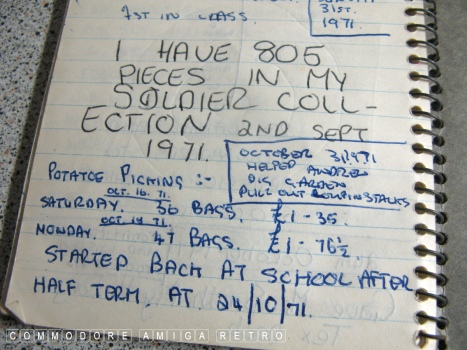 1ST IN CLASS.
31ST.
1971.
I HAVE 805
PIECES IN MY
SOLDIER COLL-
ECTION 2ND SEPT
1971.
OCTOBER 31.1971
HELPED ANDREW
DIG GARDEN
PULL OUT STALKS
POTATOE PICKING :-
OCT. 16. 71.
SATURDAY. 36 BAGS. £1-35.
OCT 19 71.
MONDAY. 47 BAGS. £1-76½
STARTED BACK AT SCHOOL AFTER
HALF TERM. AT. 24/10/71.
COMMODORE AMIGA RETRO